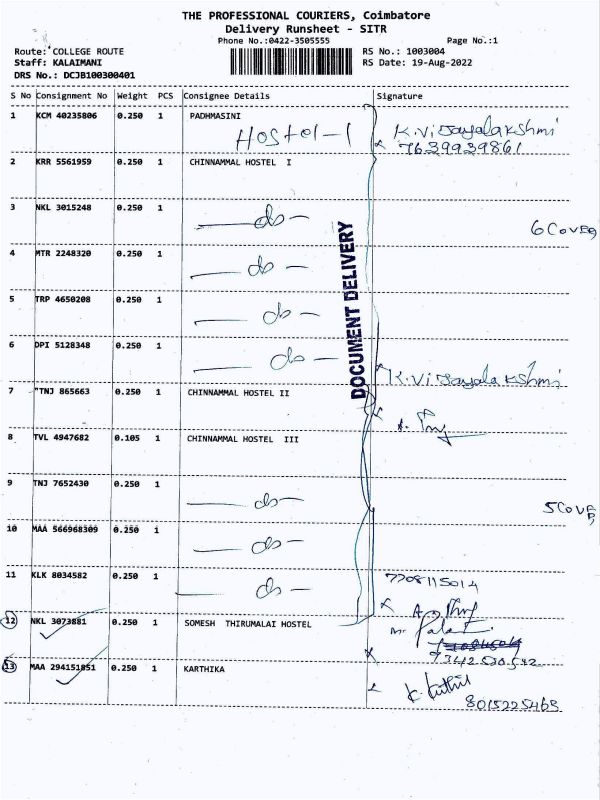 THE PROFESSIONAL COURIERS, Coimbatore
Delivery Runsheet - SITR
Phone No.:0422-3505555 Page No.:1
Route: COLLEGE ROUTE RS No.: 1003004
Staff: KALAIMANI RS Date: 19-Aug-2022
DRS No.: DCJB100300401
S No Consignment No Weight PCS Consignee Details Signature
1 KCM 40235806 0.250 1 PADHMASINI
Hostel-1 K.Vijayalakshmi
7639939861
2 KRR 5561959 0.250 1 CHINNAMMAL HOSTEL I
3 NKL 3015248 0.250 1
do 6 Cover
4 MTR 2248320 0.250 1
do
5 TRP 4650208 0.250 1
do
6 DPI 5128348 0.250 1
do K.Vijayalakshmi
DOCUMENT DELIVERY
7 "TNJ 865663 0.250 1 CHINNAMMAL HOSTEL II
8 TVL 4947682 0.105 1 CHINNAMMAL HOSTEL III
9 TNJ 7652430 0.250 1
do 5 Cover
10 MAA 566968309 0.250 1
do
11 KLK 8034582 0.250 1
do 7708115014
12 NKL 3073881 0.250 1 SOMESH THIRUMALAI HOSTEL
7342520542
13 MAA 294151851 0.250 1 KARTHIKA
8015225468